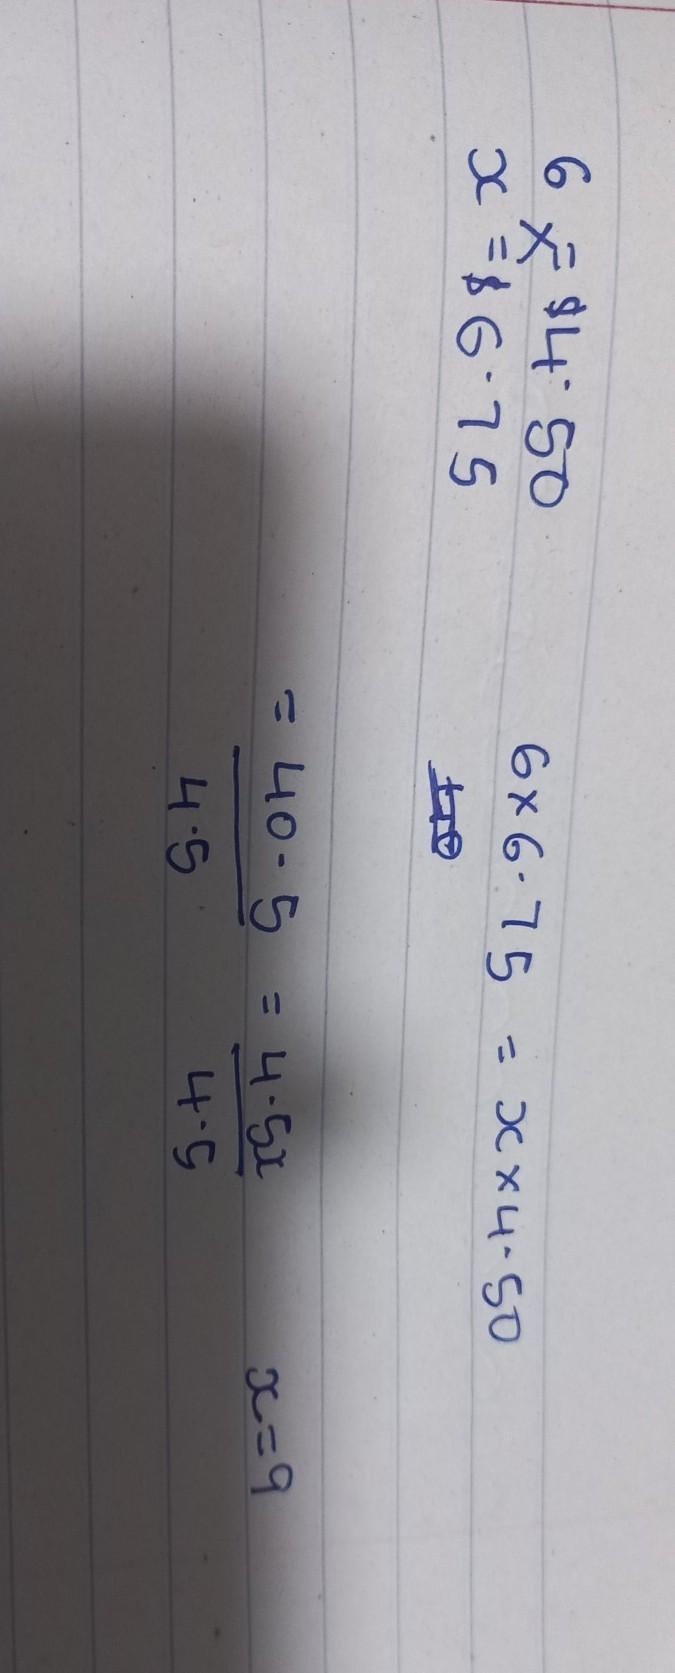 6 = $4.50
x = $6.75
6 × 6.75 = x × 4.50
= 40.5 = 4.5x
4.5 4.5
x = 9